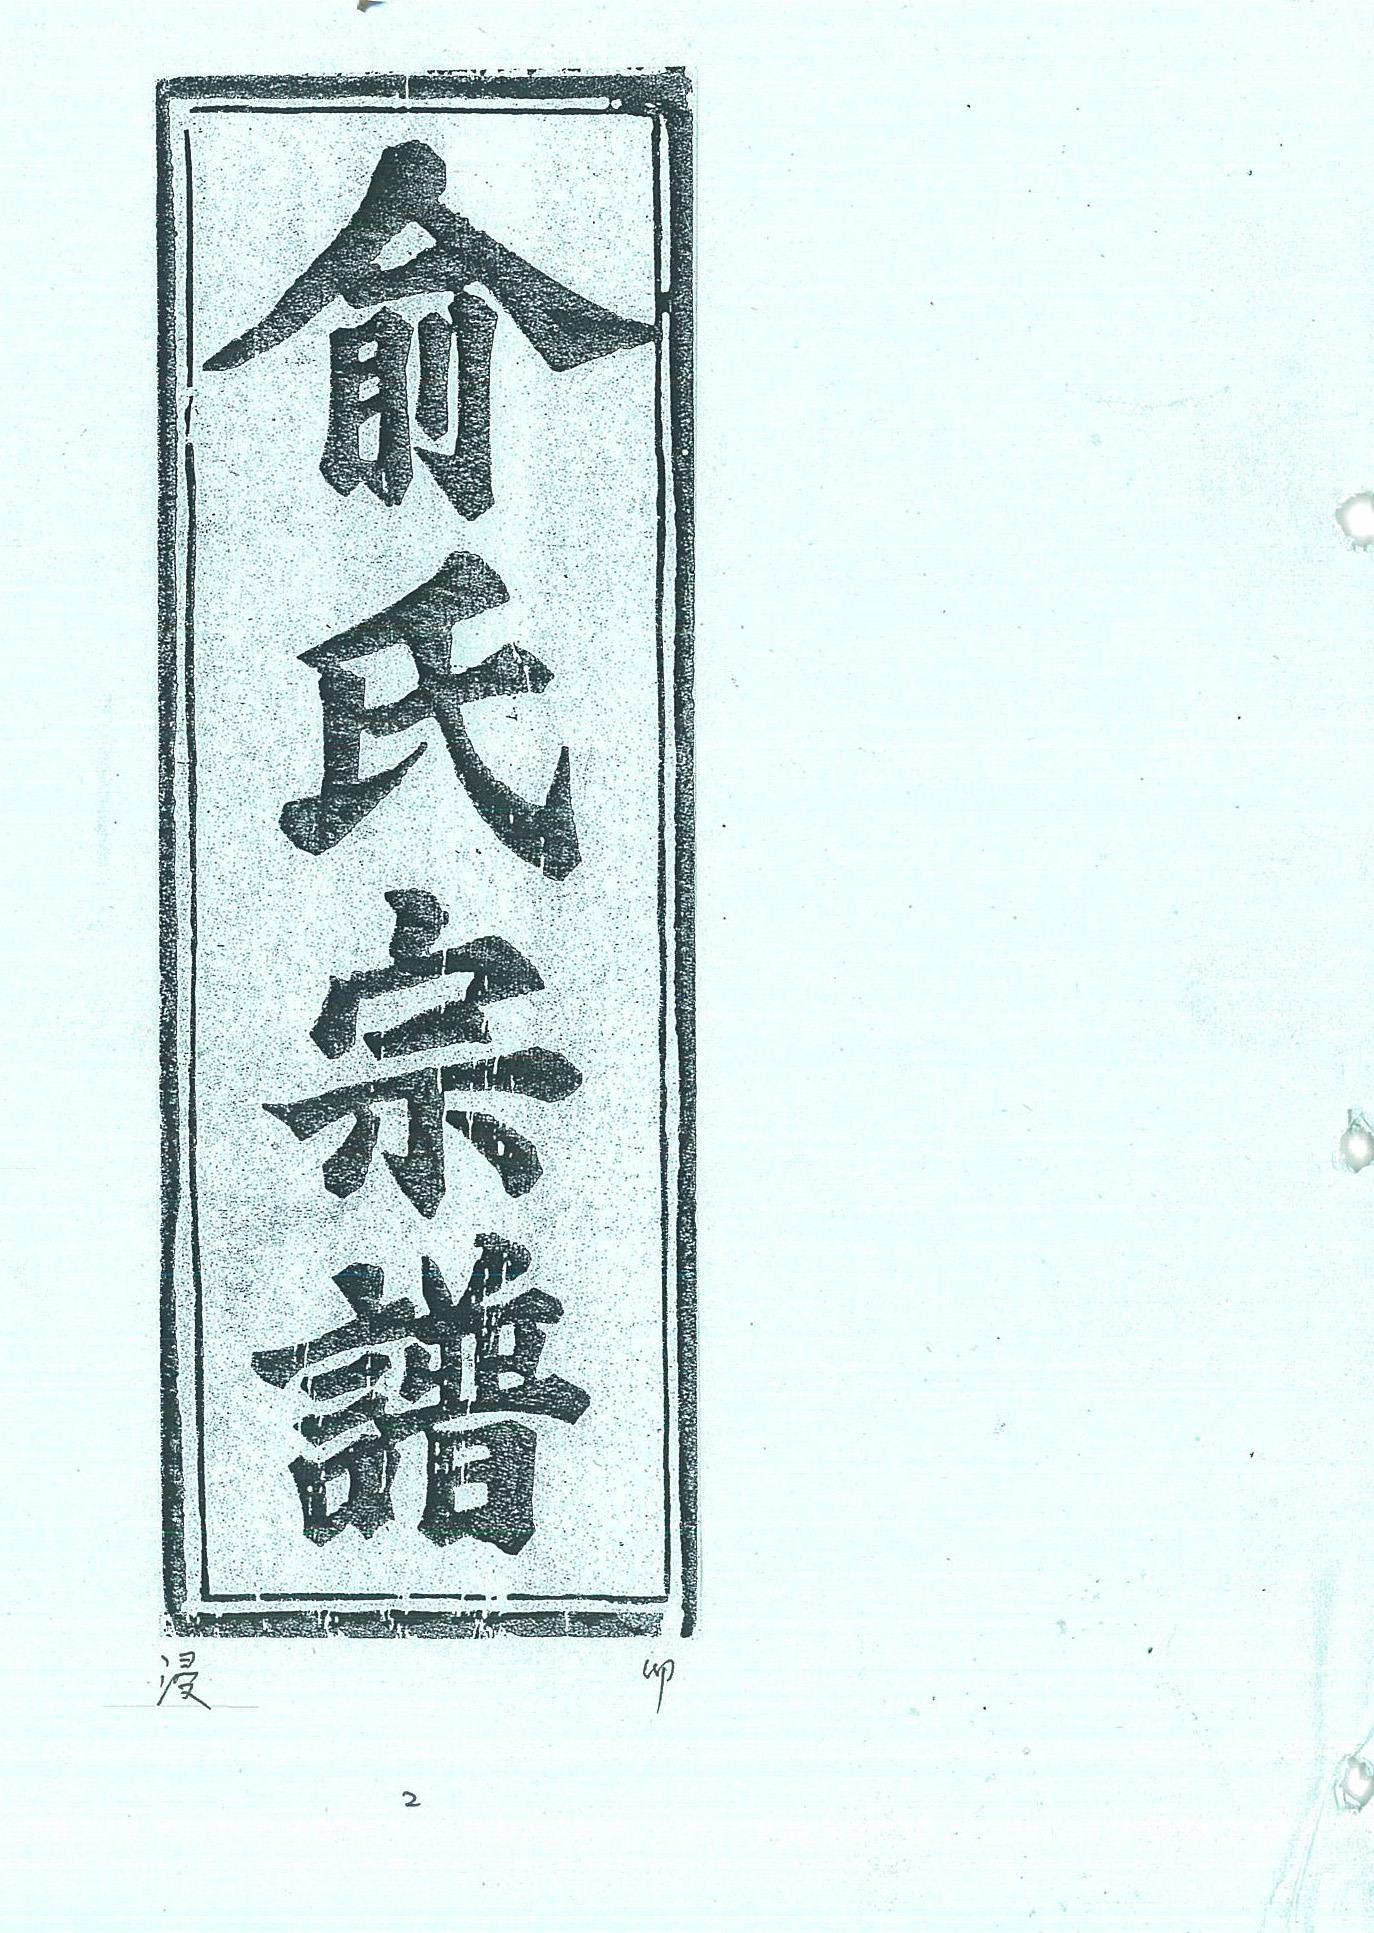 俞氏宗譜
浸 卯
2